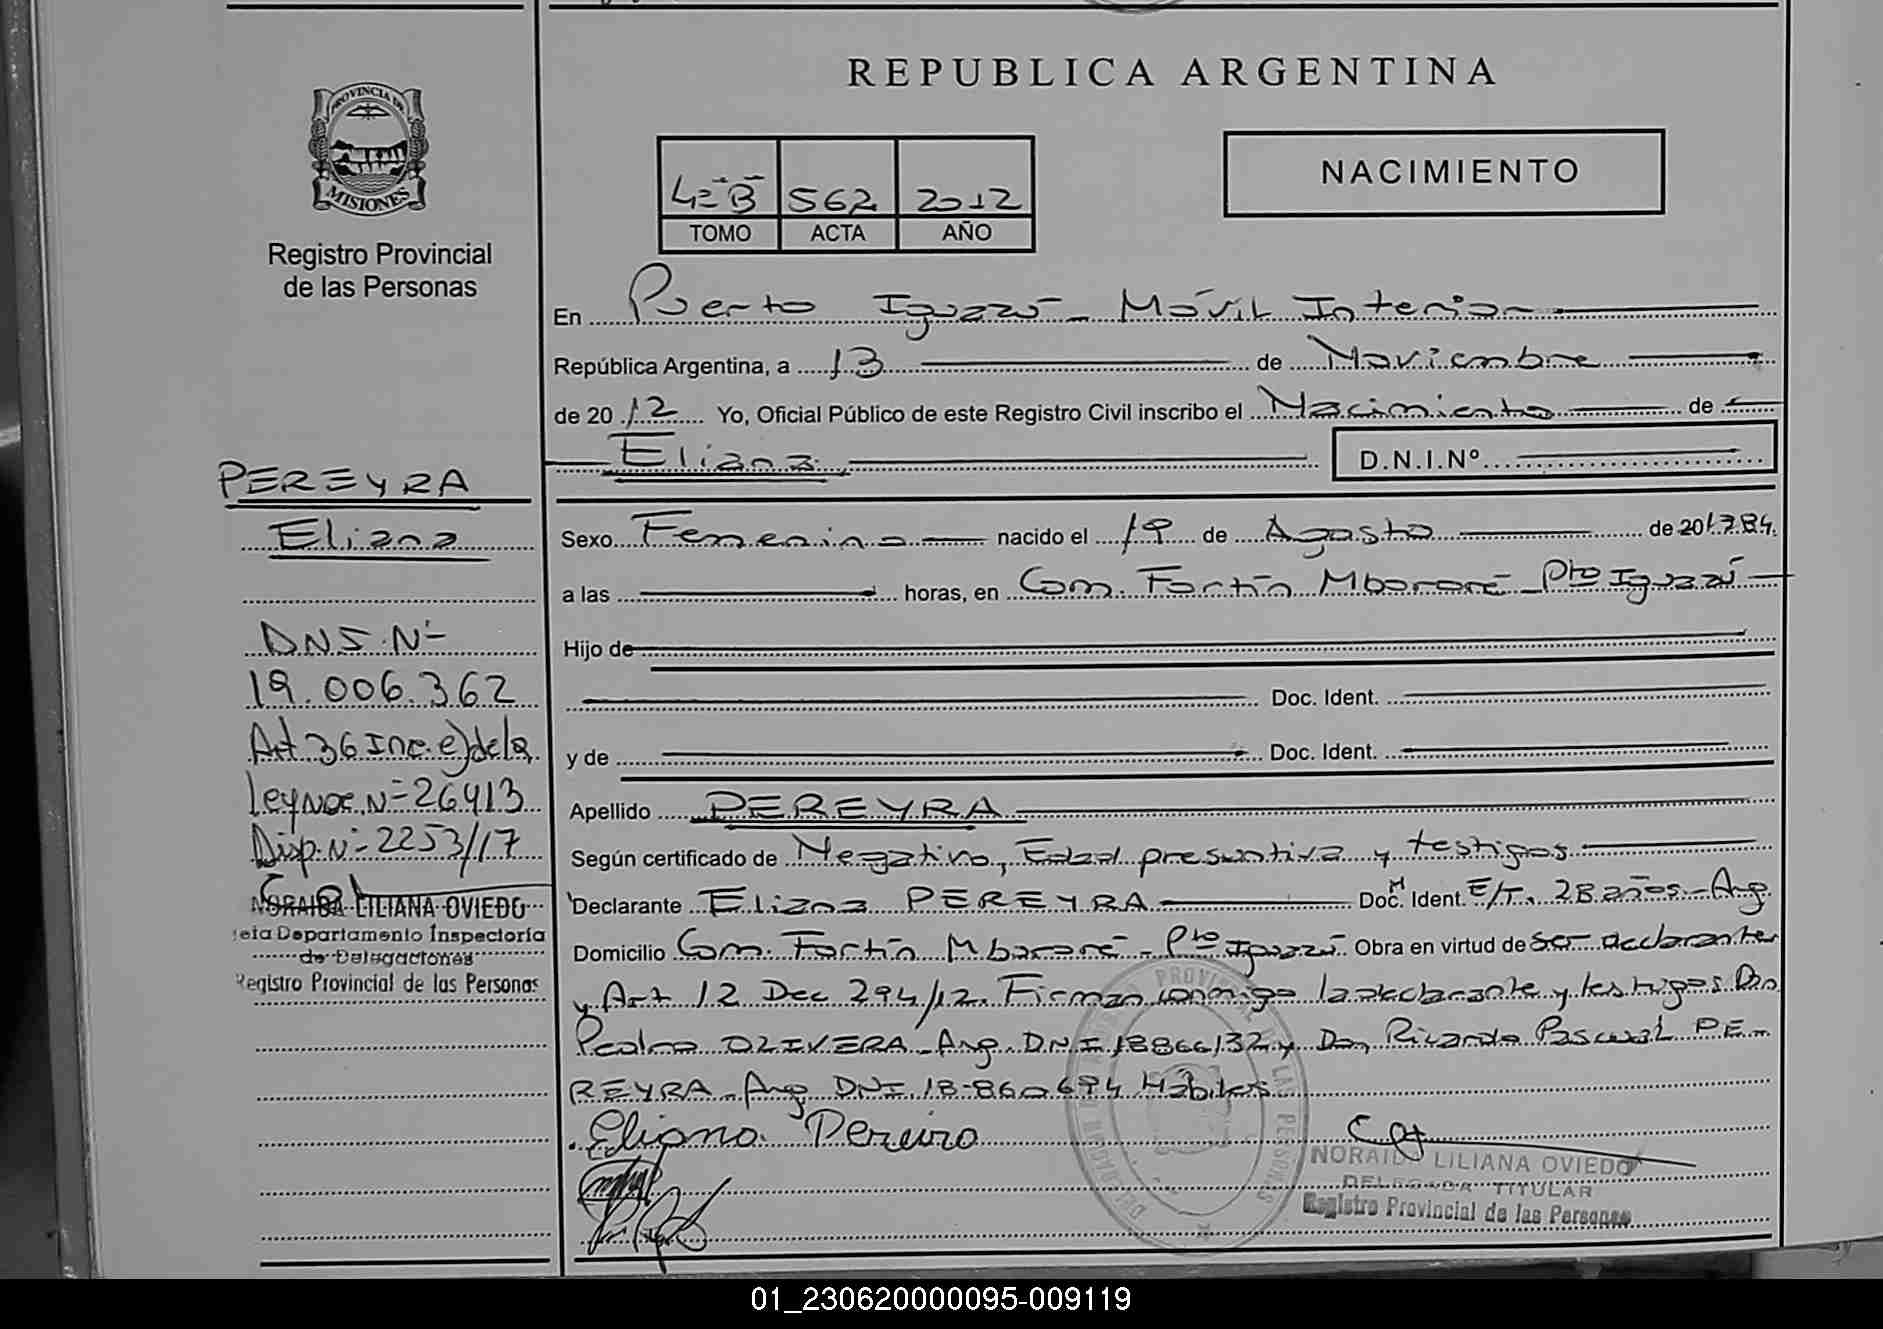 REPUBLICA ARGENTINA
PROVINCIA DE
MISIONES
Registro Provincial
de las Personas
4º B 562 2012
TOMO ACTA AÑO
NACIMIENTO
En Puerto Iguazú - Móvil Interior
República Argentina, a 13 de Noviembre
de 2012 Yo, Oficial Público de este Registro Civil inscribo el Nacimiento de
Eliana D.N.I.Nº
PEREYRA
Eliana
DNI Nº
19.006.362
Art 36 Inc. e) de la
Ley Nac. Nº 26413
Disp. Nº 2253/17
NORAIDA LILIANA OVIEDO
Departamento Inspectoría
de Delegaciones
Registro Provincial de las Personas
Sexo Femenino nacido el 19 de Agosto de 201984
a las horas, en Com. Fortín Mbororé - Pto Iguazú
Hijo de
Doc. Ident.
y de Doc. Ident.
Apellido PEREYRA
Según certificado de Negativo, Edad presuntiva y testigos
Declarante Eliana PEREYRA Doc. Ident. E/T. 28 años - Arg
Domicilio Com. Fortín Mbororé - Pto Iguazú Obra en virtud de ser declarante
y Art 12 Dec 294/12. Firman conmigo la declarante y testigos Don
Pedro OLIVERA - Arg. DNI 18866132 y Don Ricardo Pascual PE
REYRA - Arg DNI 18.860.694 Hábiles
Eliana Pereira
NORAIDA LILIANA OVIEDO
DELEGADA TITULAR
Registro Provincial de las Personas
01_230620000095-009119